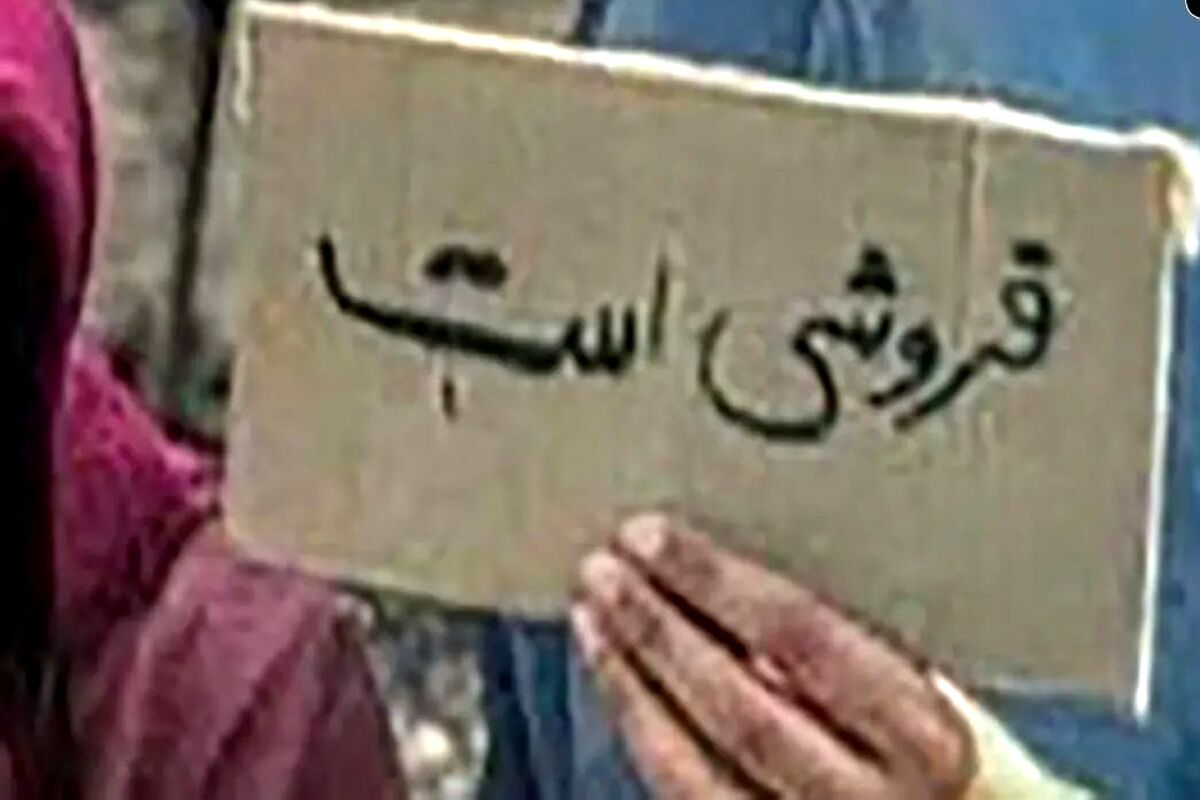 فروشی است